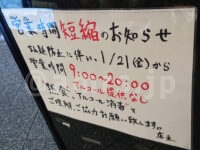 営業時間短縮のお知らせ
拡大防止に伴い、1/21(金)から
営業時間
9:00〜20:00
アルコール提供なし
黙食、アルコール消毒を
ご理解、ご協力お願い致します。
店主